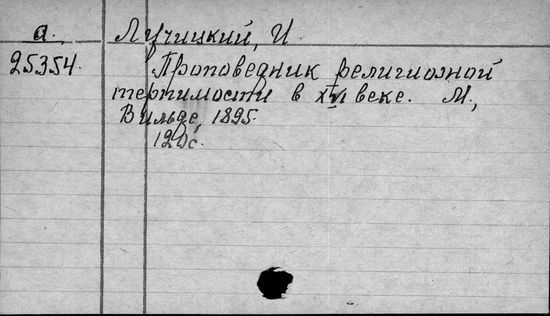 а. Лучицкий, И.
25354. Проповедник религиозной
терпимости в XVI веке. М.,
Вильде, 1895.
120с.